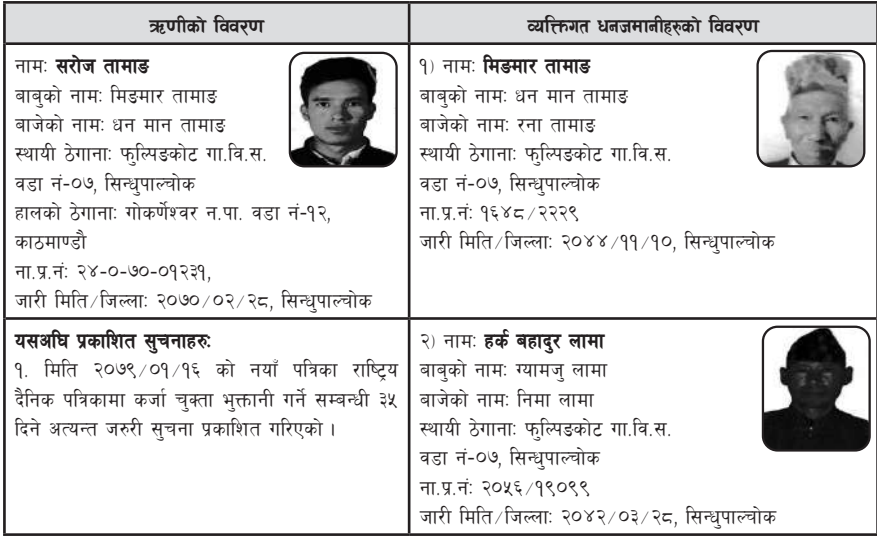 ऋणीको विवरण
नामः सरोज तामाङ
बाबुको नामः मिङमार तामाङ
बाजेको नामः धन मान तामाङ
स्थायी ठेगानाः फुल्पिङकोट गा.वि.स.
वडा नं-०७, सिन्धुपाल्चोक
हालको ठेगानाः गोकर्णेश्वर न.पा. वडा नं-१२,
काठमाण्डौ
ना.प्र.नंः २४-०-७०-०१२३१,
जारी मिति/जिल्लाः २०७०/०२/२८, सिन्धुपाल्चोक
व्यक्तिगत धनजमानीहरुको विवरण
१) नामः मिङमार तामाङ
बाबुको नामः धन मान तामाङ
बाजेको नामः रना तामाङ
स्थायी ठेगानाः फुल्पिङकोट गा.वि.स.
वडा नं-०७, सिन्धुपाल्चोक
ना.प्र.नंः १६४८/२२२९
जारी मिति/जिल्लाः २०४४/११/१०, सिन्धुपाल्चोक
यसअघि प्रकाशित सुचनाहरुः
१. मिति २०७९/०१/१६ को नयाँ पत्रिका राष्ट्रिय
दैनिक पत्रिकामा कर्जा चुक्ता भुक्तानी गर्ने सम्बन्धी ३५
दिने अत्यन्त जरुरी सुचना प्रकाशित गरिएको ।
२) नामः हर्क बहादुर लामा
बाबुको नामः ग्यामजु लामा
बाजेको नामः निमा लामा
स्थायी ठेगानाः फुल्पिङकोट गा.वि.स.
वडा नं-०७, सिन्धुपाल्चोक
ना.प्र.नंः २०५६/१९०९९
जारी मिति/जिल्लाः २०४२/०३/२८, सिन्धुपाल्चोक